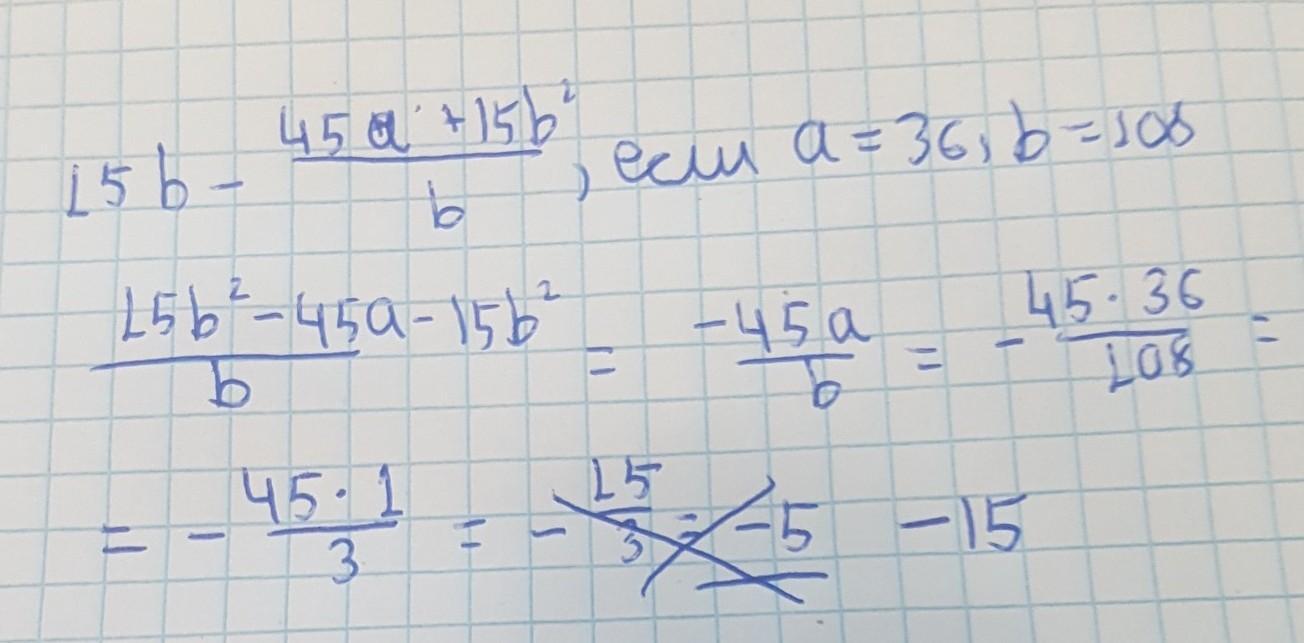 15b - (45a + 15b²)/b, если a = 36, b = 108
(15b² - 45a - 15b²)/b = -45a/b = - (45 · 36)/108 =
= - (45 · 1)/3 = - 15/3 = -5 -15